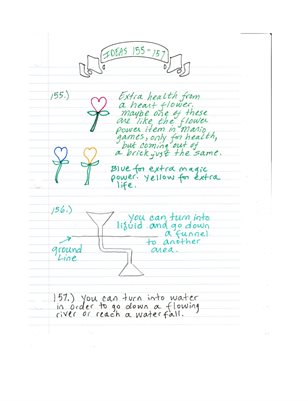 IDEAS 155-157
155.) Extra health from
a heart flower.
maybe one of these
are like the flower
power item in Mario
games, only for health,
but coming out of
a brick just the same.
Blue for extra magic
power. Yellow for extra
life.
156.) You can turn into
liquid and go down
a funnel
to another
area.
ground
Line
157.) You can turn into water
in order to go down a flowing
river or reach a waterfall.